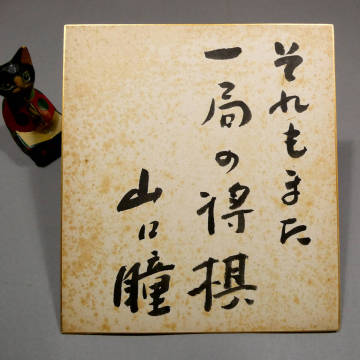 それもまた
一局の将棋
山口瞳